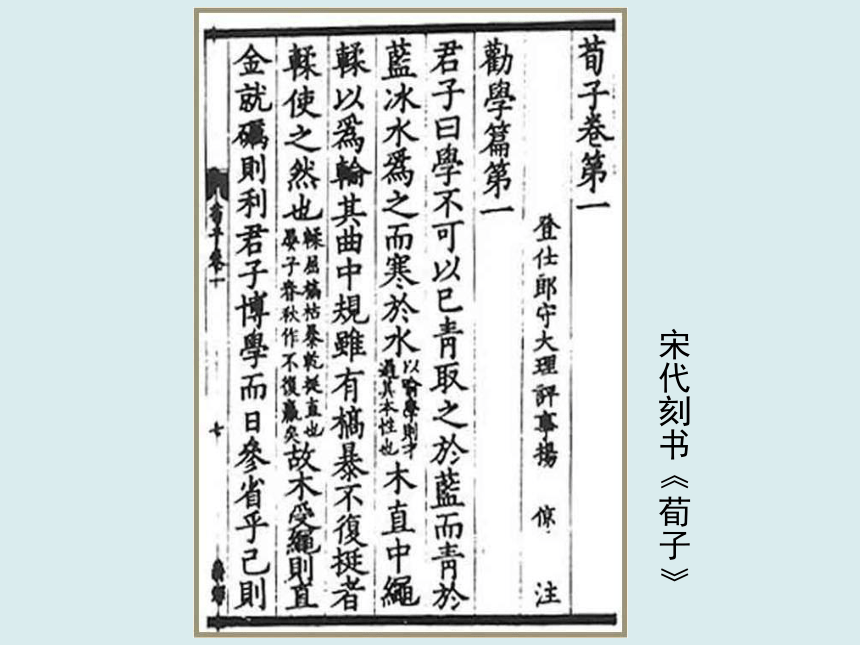 荀子卷第一
登仕郎守大理評事揚 倞 注
勸學篇第一
君子曰學不可以已青取之於藍而青於
藍冰水爲之而寒於水以喻學則才過其本性也木直中繩
輮以爲輪其曲中規雖有槁暴不復挺者
輮使之然也輮屈槁枯暴乾挺直也晏子春秋作不復贏矣故木受繩則直
金就礪則利君子博學而日參省乎己則
荀子卷一
七
宋代刻书《荀子》